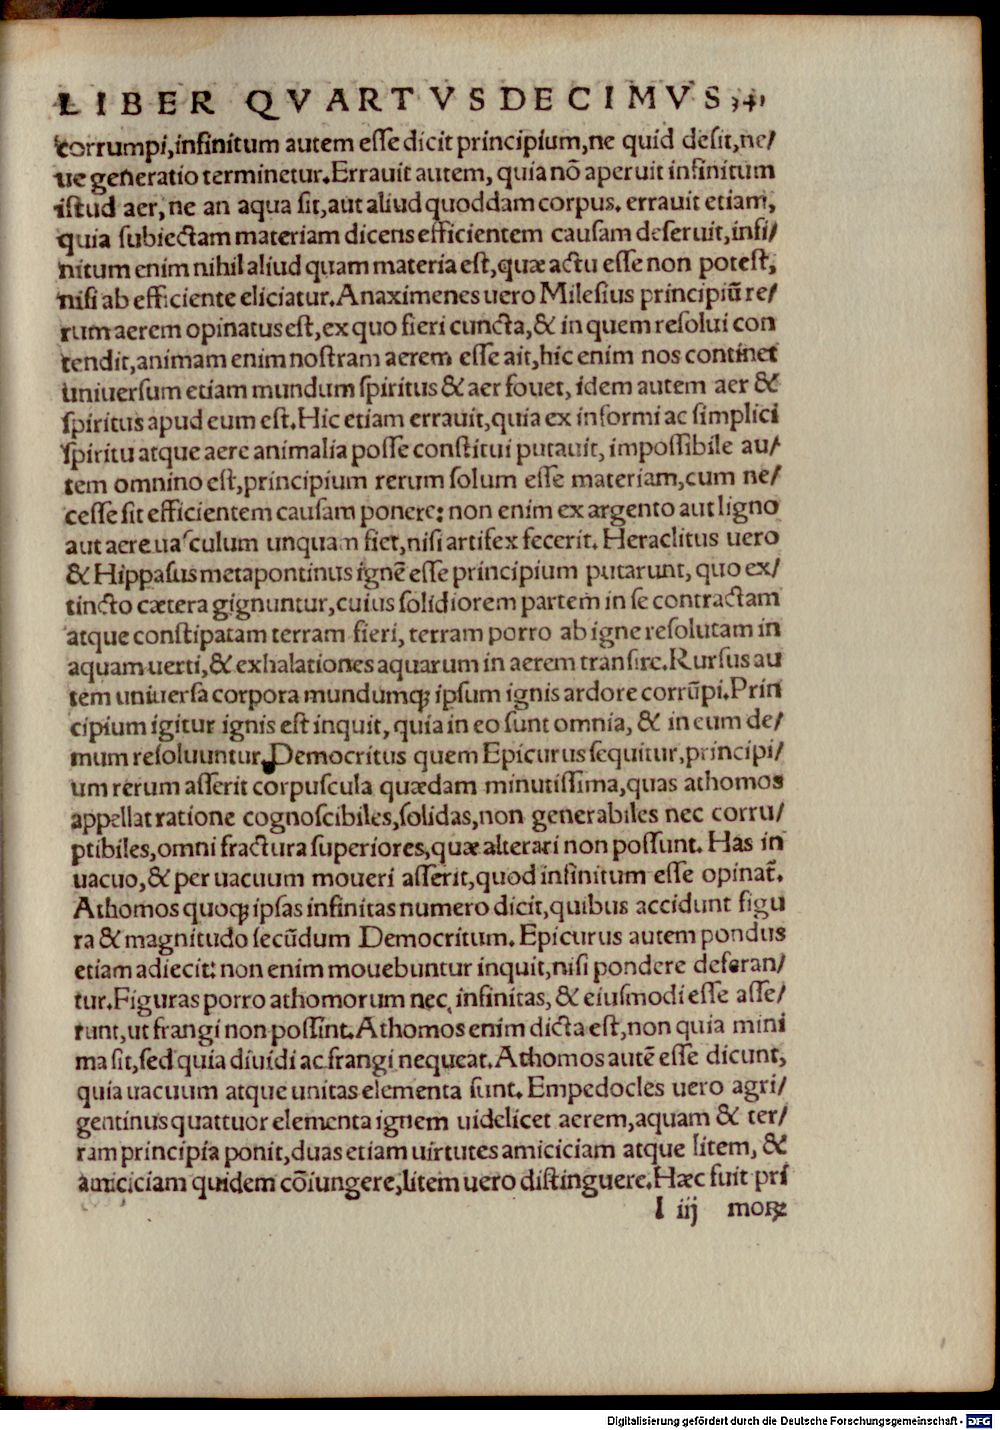 LIBER QVARTVSDECIMVS
corrumpi,infinitum autem esse dicit principium,ne quid desit,ne/
ue generatio terminetur.Errauit autem, quia nō aperuit infinitum
istud aer, ne an aqua sit,aut aliud quoddam corpus. errauit etiam,
quia subiectam materiam dicens efficientem causam deseruit,infi/
nitum enim nihil aliud quam materia est,quæ actu esse non potest,
nisi ab efficiente eliciatur.Anaximenes uero Milesius principiū re/
rum aerem opinatus est, ex quo fieri cuncta,& in quem resolui con
tendit,animam enim nostram aerem esse ait,hic enim nos continet
uniuersum etiam mundum spiritus & aer fouet, idem autem aer &
spiritus apud eum est.Hic etiam errauit,quia ex informi ac simplici
spiritu atque aere animalia posse constitui putauit, impossibile au/
tem omnino est,principium rerum solum esse materiam,cum ne/
cesse sit efficientem causam ponere: non enim ex argento aut ligno
aut aere uasculum unquam fiet,nisi artifex fecerit. Heraclitus uero
& Hippasus metapontinus ignē esse principium putarunt, quo ex/
tincto cætera gignuntur,cuius solidiorem partem in se contractam
atque constipatam terram fieri, terram porro ab igne resolutam in
aquam uerti,& exhalationes aquarum in aerem transire.Rursus au
tem uniuersa corpora mundumqꝫ ipsum ignis ardore corrūpi.Prin
cipium igitur ignis est inquit, quia in eo sunt omnia, & in eum de/
mum resoluuntur.Democritus quem Epicurus sequitur,principi/
um rerum asserit corpuscula quædam minutissima,quas athomos
appellat ratione cognoscibiles,solidas,non generabiles nec corru/
ptibiles,omni fractura superiores,quæ alterari non possunt. Has in
uacuo,& per uacuum moueri asserit,quod infinitum esse opinat̃.
Athomos quoqꝫ ipsas infinitas numero dicit,quibus accidunt figu
ra & magnitudo secūdum Democritum. Epicurus autem pondus
etiam adiecit: non enim mouebuntur inquit,nisi pondere deferan/
tur.Figuras porro athomorum nec infinitas, & eiusmodi esse asse/
runt,ut frangi non possint.Athomos enim dicta est,non quia mini
ma sit,sed quia diuidi ac frangi nequeat.Athomos autē esse dicunt,
quia uacuum atque unitas elementa sunt. Empedocles uero agri/
gentinus quattuor elementa ignem uidelicet aerem,aquam & ter/
ram principia ponit,duas etiam uirtutes amiciciam atque litem, &
amiciciam quidem cōiungere,litem uero distinguere.Hæc fuit pri
l iij morꝝ
Digitalisierung gefördert durch die Deutsche Forschungsgemeinschaft - DFG